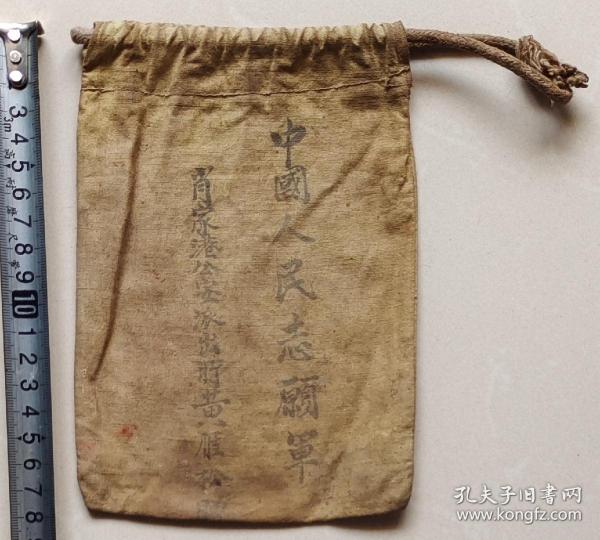 中國人民志願軍
肖家港公安派出所黄雁秋
3 4 5 6 7 8 9 10 1 2 3 4 5 6 7 8 9
3m
孔夫子旧书网
www.kongfz.com